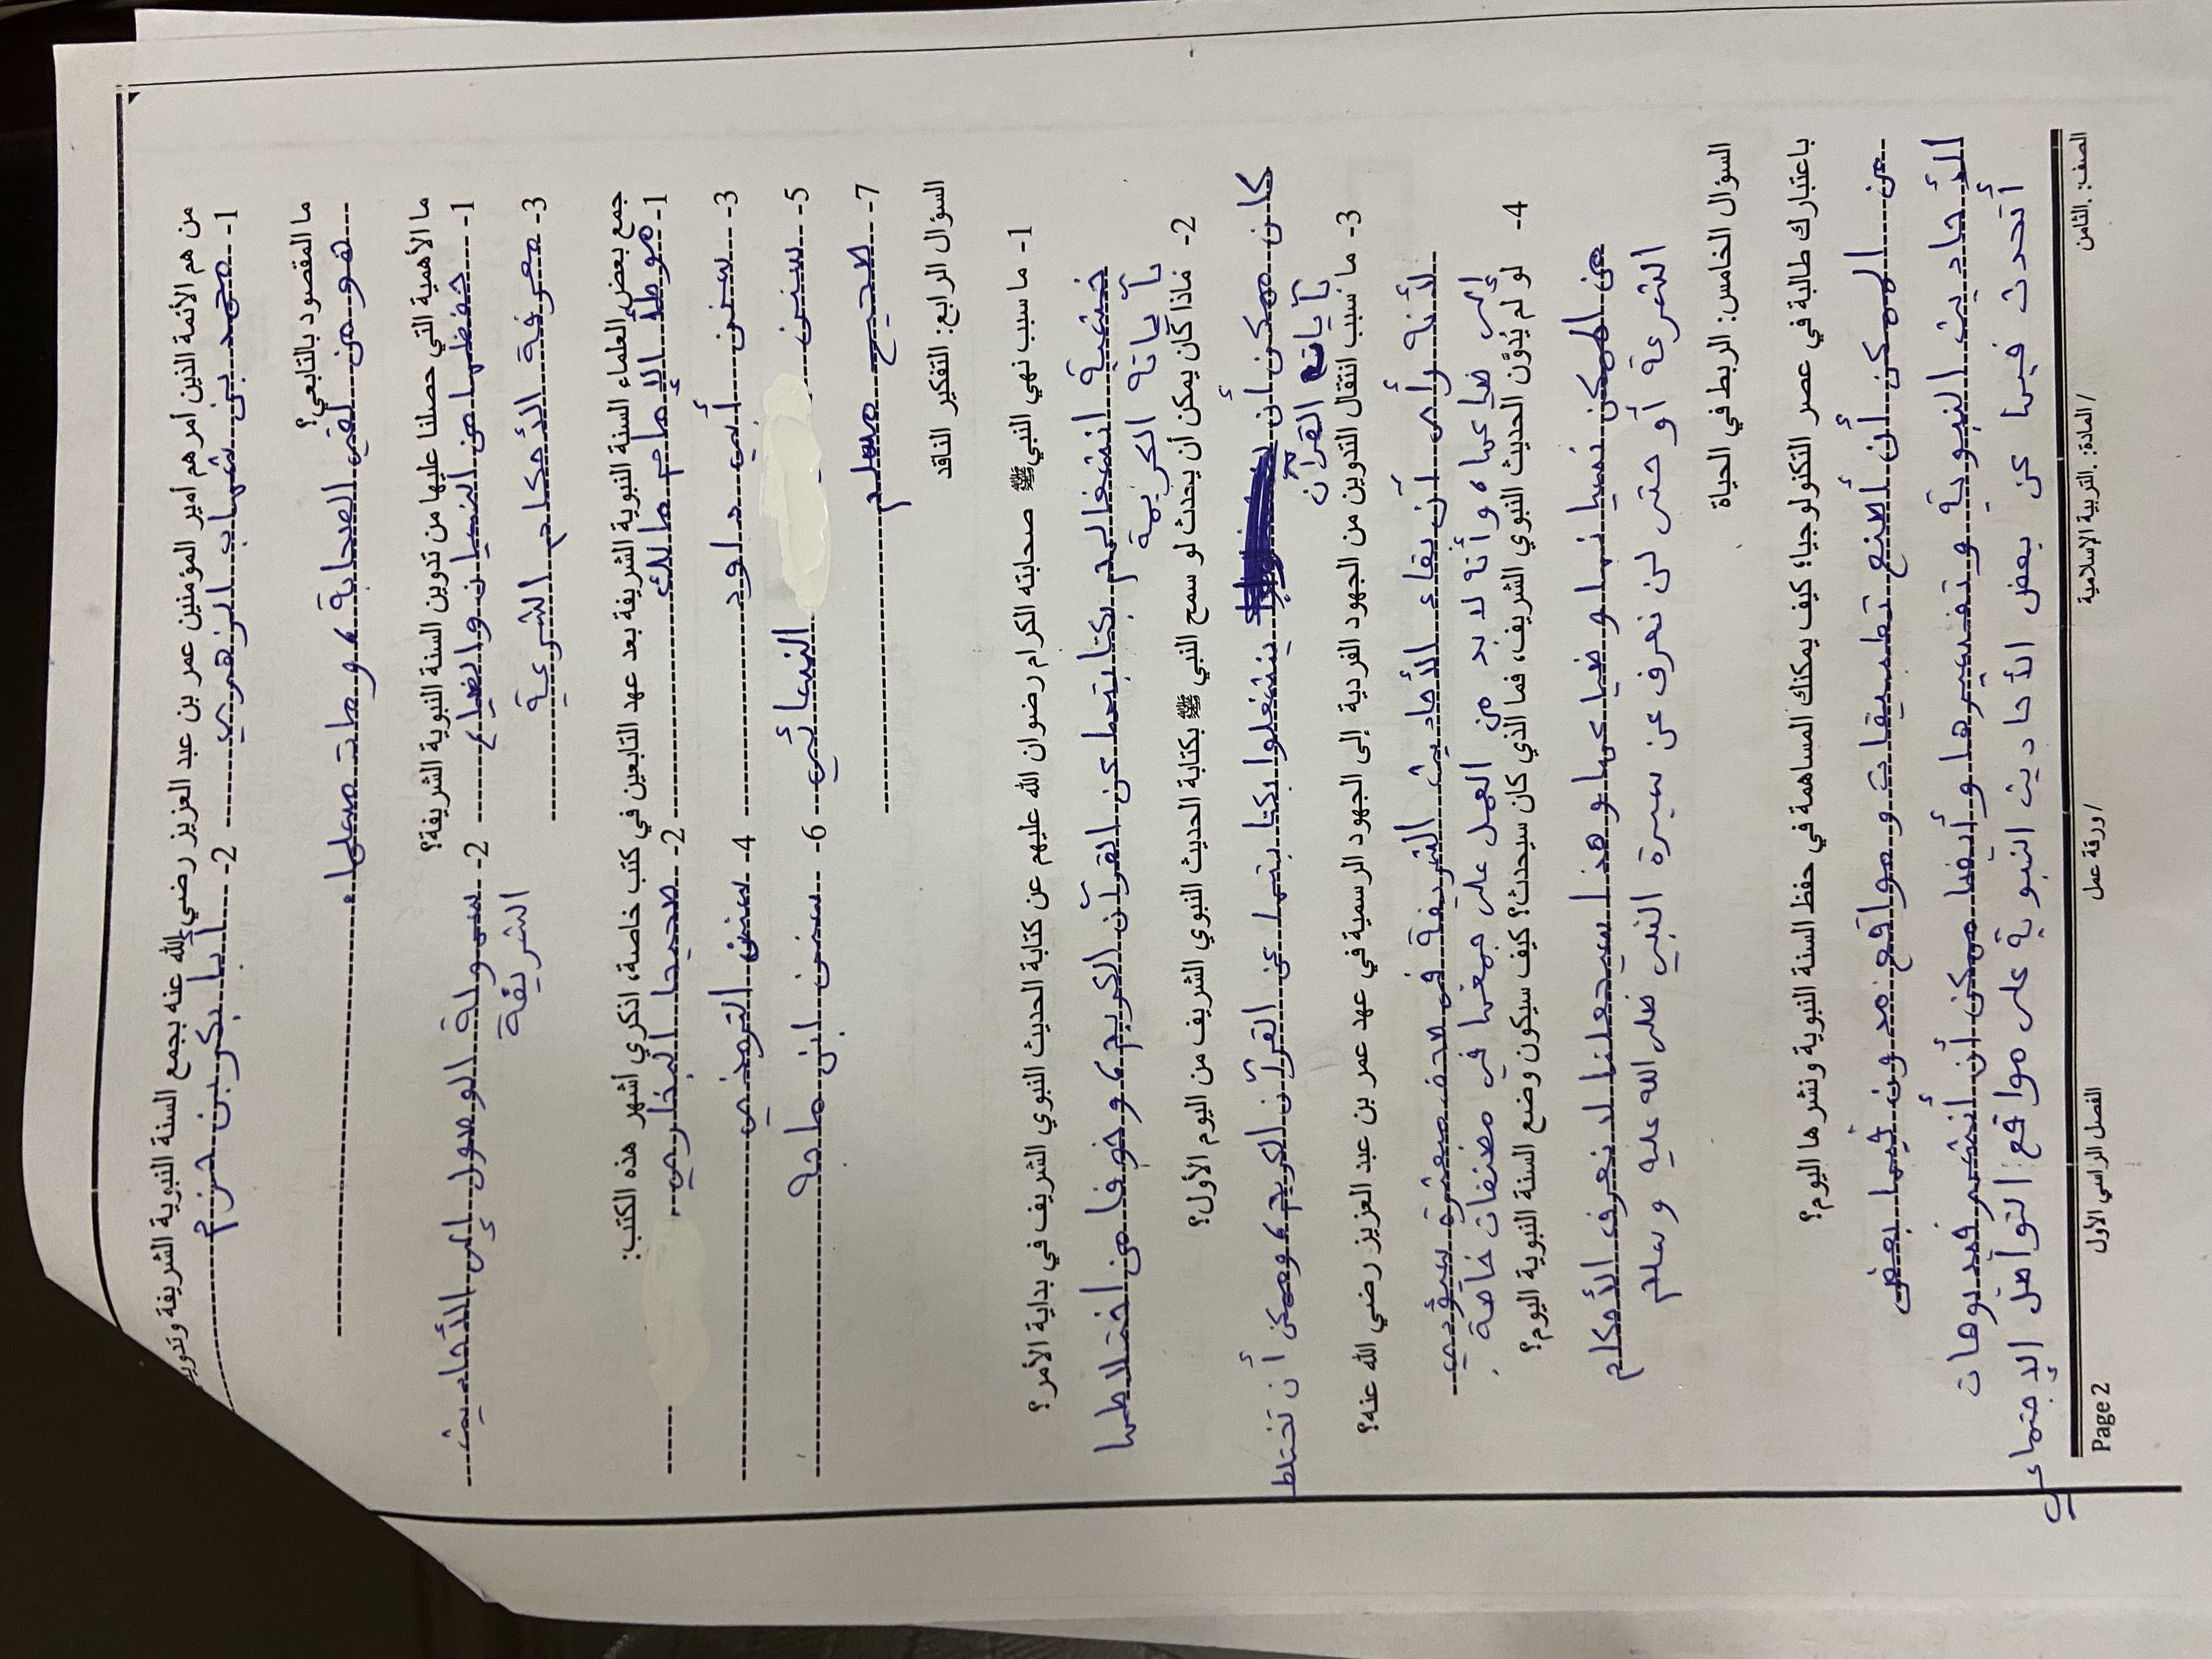 من هم الأئمة الذين أمرهم أمير المؤمنين عمر بن عبد العزيز رضي الله عنه بجمع السنة النبوية الشريفة
1- محمد بن شهاب الزهري 2- أبا بكر بن حزم
ما المقصود بالتابعي؟
هو من لقي الصحابة، ومات مسلما.
ما الأهمية التي حصلنا عليها من تدوين السنة النبوية الشريفة؟
1- حفظها من النسيان والضياع 2- سهولة الوصول إلى الأحاديث الشريفة
3- معرفة الأحكام الشرعية
جمع بعض العلماء السنة النبوية الشريفة بعد عهد التابعين في كتب خاصة، اذكري أشهر هذه الكتب:
1- موطأ الإمام مالك 2- صحيحا البخاري
3- سنن أبي داود 4- سنن الترمذي
5- سنن النسائي 6- سنن ابن ماجه
7- صحيح مسلم
السؤال الرابع: التفكير الناقد
1- ما سبب نهي النبي ﷺ صحابته الكرام رضوان الله عليهم عن كتابة الحديث النبوي الشريف في بداية الأمر؟
خشية انشغالهم بكتابتها عن القرآن الكريم، وخوفا من اختلاطها
بآياته الكريمة
2- ماذا كان يمكن أن يحدث لو سمح النبي ﷺ بكتابة الحديث النبوي الشريف من اليوم الأول؟
كان ممكن أن ينشغلوا بكتابتها عن القرآن الكريم، وممكن أن تختلط
بآيات القرآن
3- ما سبب انتقال التدوين من الجهود الفردية إلى الجهود الرسمية في عهد عمر بن عبد العزيز رضي الله عنه؟
لأنه رأى أن بقاء الأحاديث الشريفة في صحف مبعثرة سيؤدي
إلى ضياعها، وأنه لا بد من العمل على جمعها في مصنفات خاصة.
4- لو لم يُدوَّن الحديث النبوي الشريف، فما الذي كان سيحدث؟ كيف سيكون وضع السنة النبوية اليوم؟
من الممكن نسيانها وضياعها وهذا سيجعلنا لا نعرف الأحكام
الشرعة أو حتى لن نعرف عن سيرة النبي صلى الله عليه وسلم
السؤال الخامس: الربط في الحياة
باعتبارك طالبة في عصر التكنولوجيا؛ كيف يمكنك المساهمة في حفظ السنة النبوية ونشرها اليوم؟
من الممكن أن أصنع تطبيقات ومواقع مدون فيها بعض
الأحاديث النبوية وتفسيرها وأيضا ممكن أن أنشر فيديوهات
أتحدث فيها عن بعض الأحاديث النبوية على مواقع التواصل الإجتماعي
الصف: .الثامن / المادة: .التربية الإسلامية / ورقة عمل الفصل الراسي الأول Page 2